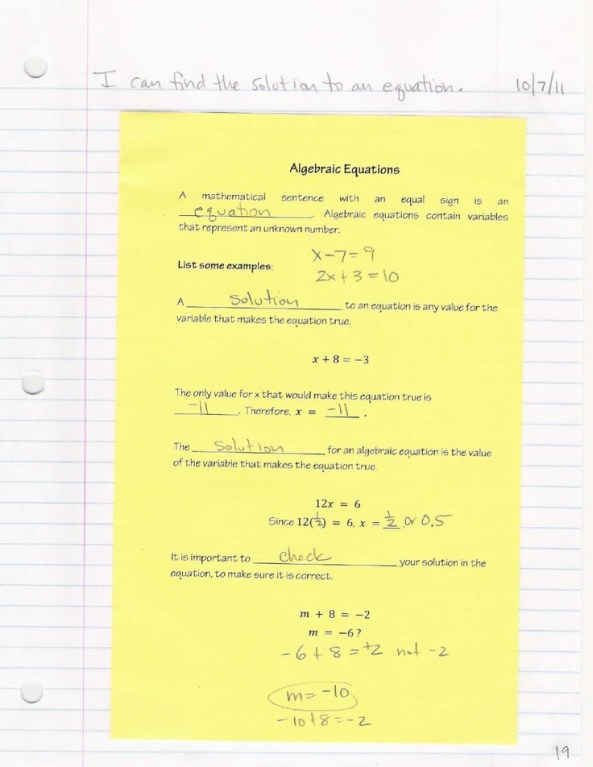 I can find the solution to an equation. 10/7/11
Algebraic Equations
A mathematical sentence with an equal sign is an
equation. Algebraic equations contain variables
that represent an unknown number.
x-7=9
List some examples:
2x+3=10
A solution to an equation is any value for the
variable that makes the equation true.
x + 8 = −3
The only value for x that would make this equation true is
-11. Therefore, x = -11.
The solution for an algebraic equation is the value
of the variable that makes the equation true.
12x = 6
Since 12(1/2) = 6, x = 1/2 or 0.5
It is important to check your solution in the
equation, to make sure it is correct.
m + 8 = −2
m = −6?
-6+8=+2 not -2
m=-10
-10+8=-2
19